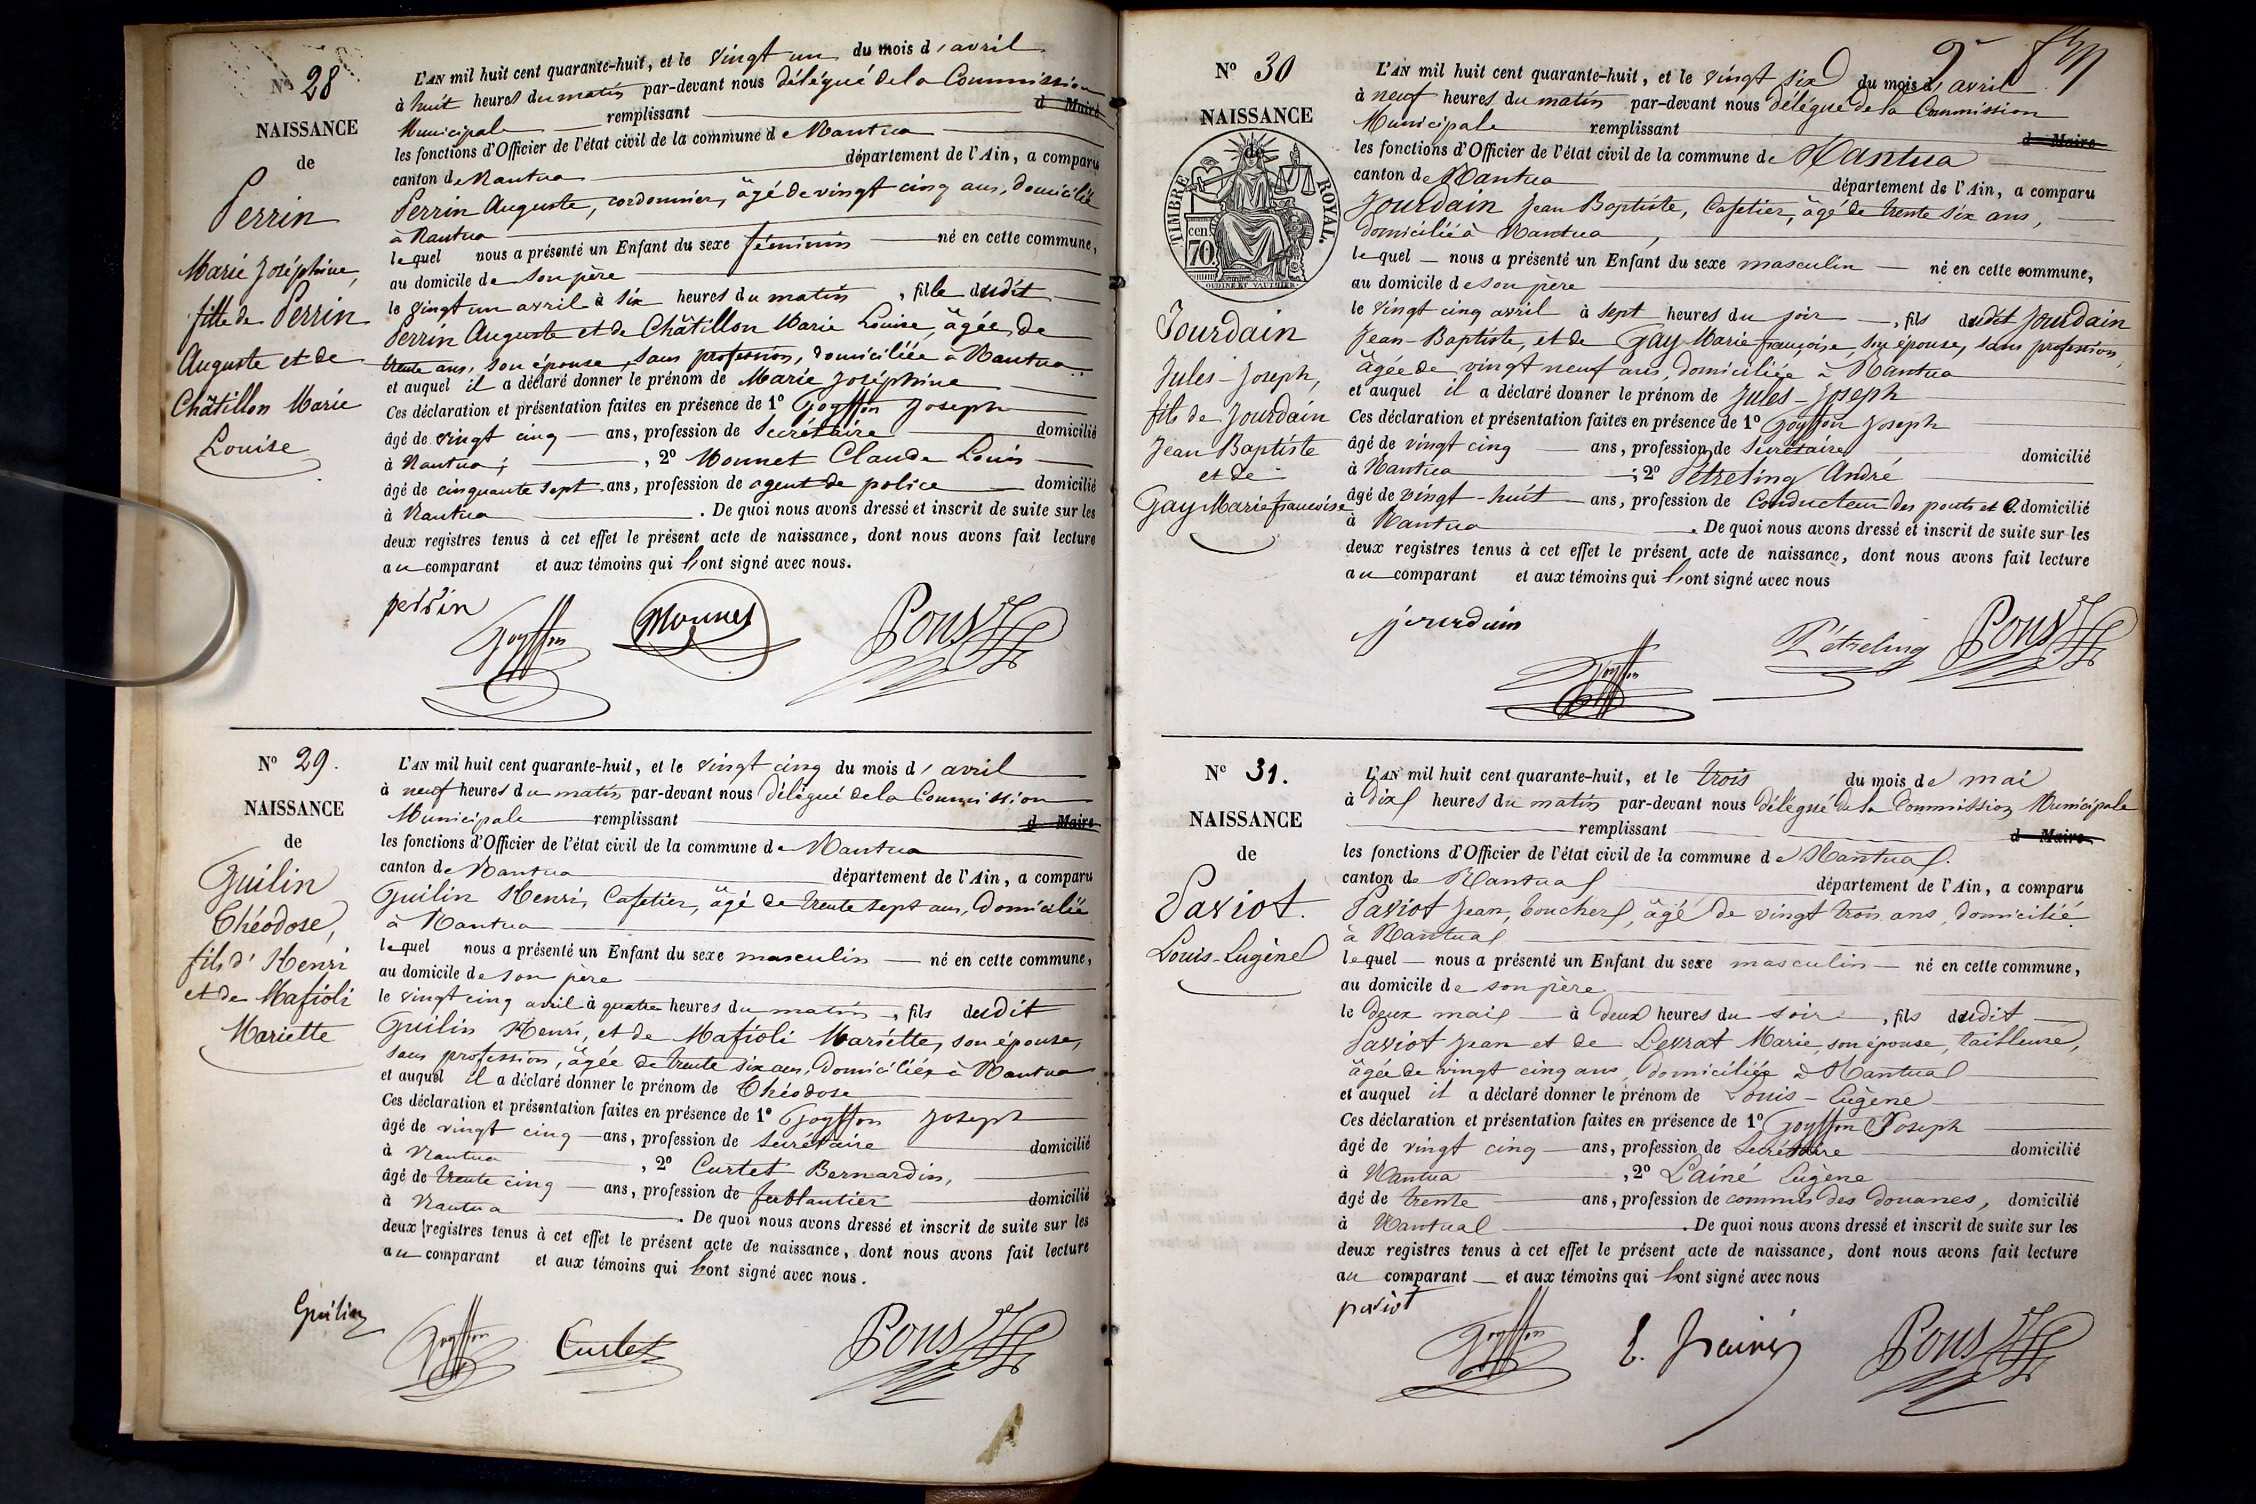 N° 28
NAISSANCE
de
Perrin
Marie Joséphine,
fille de Perrin
Auguste et de
Châtillon Marie
Louise
L'AN mil huit cent quarante-huit, et le vingt un du mois d'avril
à huit heures du matin par-devant nous délégué de la Commission
Municipale remplissant d Maire
les fonctions d'Officier de l'état civil de la commune de Nantua
canton de Nantua département de l'Ain, a comparu
Perrin Auguste, cordonnier, âgé de vingt cinq ans, domicilié
à Nantua
lequel nous a présenté un Enfant du sexe féminin né en cette commune,
au domicile de son père
le vingt un avril à six heures du matin, fille dudit
Perrin Auguste et de Châtillon Marie Louise, âgée de
trente ans, son épouse, sans profession, domiciliée à Nantua
et auquel il a déclaré donner le prénom de Marie Joséphine
Ces déclaration et présentation faites en présence de 1° Goyffon Joseph
âgé de vingt cinq ans, profession de Secrétaire domicilié
à Nantua; , 2° Monnet Claude Louis
âgé de cinquante sept ans, profession de agent de police domicilié
à Nantua . De quoi nous avons dressé et inscrit de suite sur les
deux registres tenus à cet effet le présent acte de naissance, dont nous avons fait lecture
au comparant et aux témoins qui l'ont signé avec nous.
perrin Goyffon Monnet Pons
N° 29.
NAISSANCE
de
Guilin
Théodose,
fils d'Henri
et de Mafioli
Mariette
L'AN mil huit cent quarante-huit, et le vingt cinq du mois d'avril
à neuf heures du matin par-devant nous délégué de la Commission
Municipale remplissant d Maire
les fonctions d'Officier de l'état civil de la commune de Nantua
canton de Nantua département de l'Ain, a comparu
Guilin Henri, Cafetier, âgé de trente sept ans, domicilié
à Nantua
lequel nous a présenté un Enfant du sexe masculin né en cette commune,
au domicile de son père
le vingt cinq avril à quatre heures du matin, fils dudit
Guilin Henri, et de Mafioli Mariette, son épouse,
sans profession, âgée de trente six ans, domiciliée à Nantua
et auquel il a déclaré donner le prénom de Théodose
Ces déclaration et présentation faites en présence de 1° Goyffon Joseph
âgé de vingt cinq ans, profession de Secrétaire domicilié
à Nantua , 2° Curtet Bernardin,
âgé de trente cinq ans, profession de ferblantier domicilié
à Nantua . De quoi nous avons dressé et inscrit de suite sur les
deux registres tenus à cet effet le présent acte de naissance, dont nous avons fait lecture
au comparant et aux témoins qui l'ont signé avec nous.
Guilin Goyffon Curtet Pons
N° 30
NAISSANCE
de
TIMBRE ROYAL.
70 cen
Jourdain
Jules-Joseph,
fils de Jourdain
Jean Baptiste
et de
Gay Marie françoise
L'AN mil huit cent quarante-huit, et le vingt six du mois d'avril
à neuf heures du matin par-devant nous délégué de la Commission
Municipale remplissant d Maire
les fonctions d'Officier de l'état civil de la commune de Nantua
canton de Nantua département de l'Ain, a comparu
Jourdain Jean Baptiste, Cafetier, âgé de trente six ans,
domicilié à Nantua,
lequel nous a présenté un Enfant du sexe masculin né en cette commune,
au domicile de son père
le vingt cinq avril à sept heures du soir, fils dudit Jourdain
Jean-Baptiste, et de Gay Marie françoise, son épouse, sans profession,
âgée de vingt neuf ans, domiciliée à Nantua
et auquel il a déclaré donner le prénom de Jules-Joseph
Ces déclaration et présentation faites en présence de 1° Goyffon Joseph
âgé de vingt cinq ans, profession de Secrétaire domicilié
à Nantua ; 2° Pétreling André
âgé de vingt-huit ans, profession de Conducteur des ponts et C. domicilié
à Nantua . De quoi nous avons dressé et inscrit de suite sur les
deux registres tenus à cet effet le présent acte de naissance, dont nous avons fait lecture
au comparant et aux témoins qui l'ont signé avec nous
jourdain Goyffon Pétreling Pons
N° 31.
NAISSANCE
de
Paviot.
Louis-Eugène
L'AN mil huit cent quarante-huit, et le trois du mois de mai
à dix heures du matin par-devant nous délégué de la Commission Municipale
remplissant d Maire
les fonctions d'Officier de l'état civil de la commune de Nantua.
canton de Nantua département de l'Ain, a comparu
Paviot Jean, boucher, âgé de vingt trois ans, domicilié
à Nantua
lequel nous a présenté un Enfant du sexe masculin né en cette commune,
au domicile de son père
le deux mai à deux heures du soir, fils dudit
Paviot Jean et de Levrat Marie, son épouse, tailleuse,
âgée de vingt cinq ans, domiciliée à Nantua
et auquel il a déclaré donner le prénom de Louis-Eugène
Ces déclaration et présentation faites en présence de 1° Goyffon Joseph
âgé de vingt cinq ans, profession de Secrétaire domicilié
à Nantua , 2° Lainé Eugène
âgé de trente ans, profession de commis des douanes, domicilié
à Nantua . De quoi nous avons dressé et inscrit de suite sur les
deux registres tenus à cet effet le présent acte de naissance, dont nous avons fait lecture
au comparant et aux témoins qui l'ont signé avec nous
paviot Goyffon E. Lainé Pons